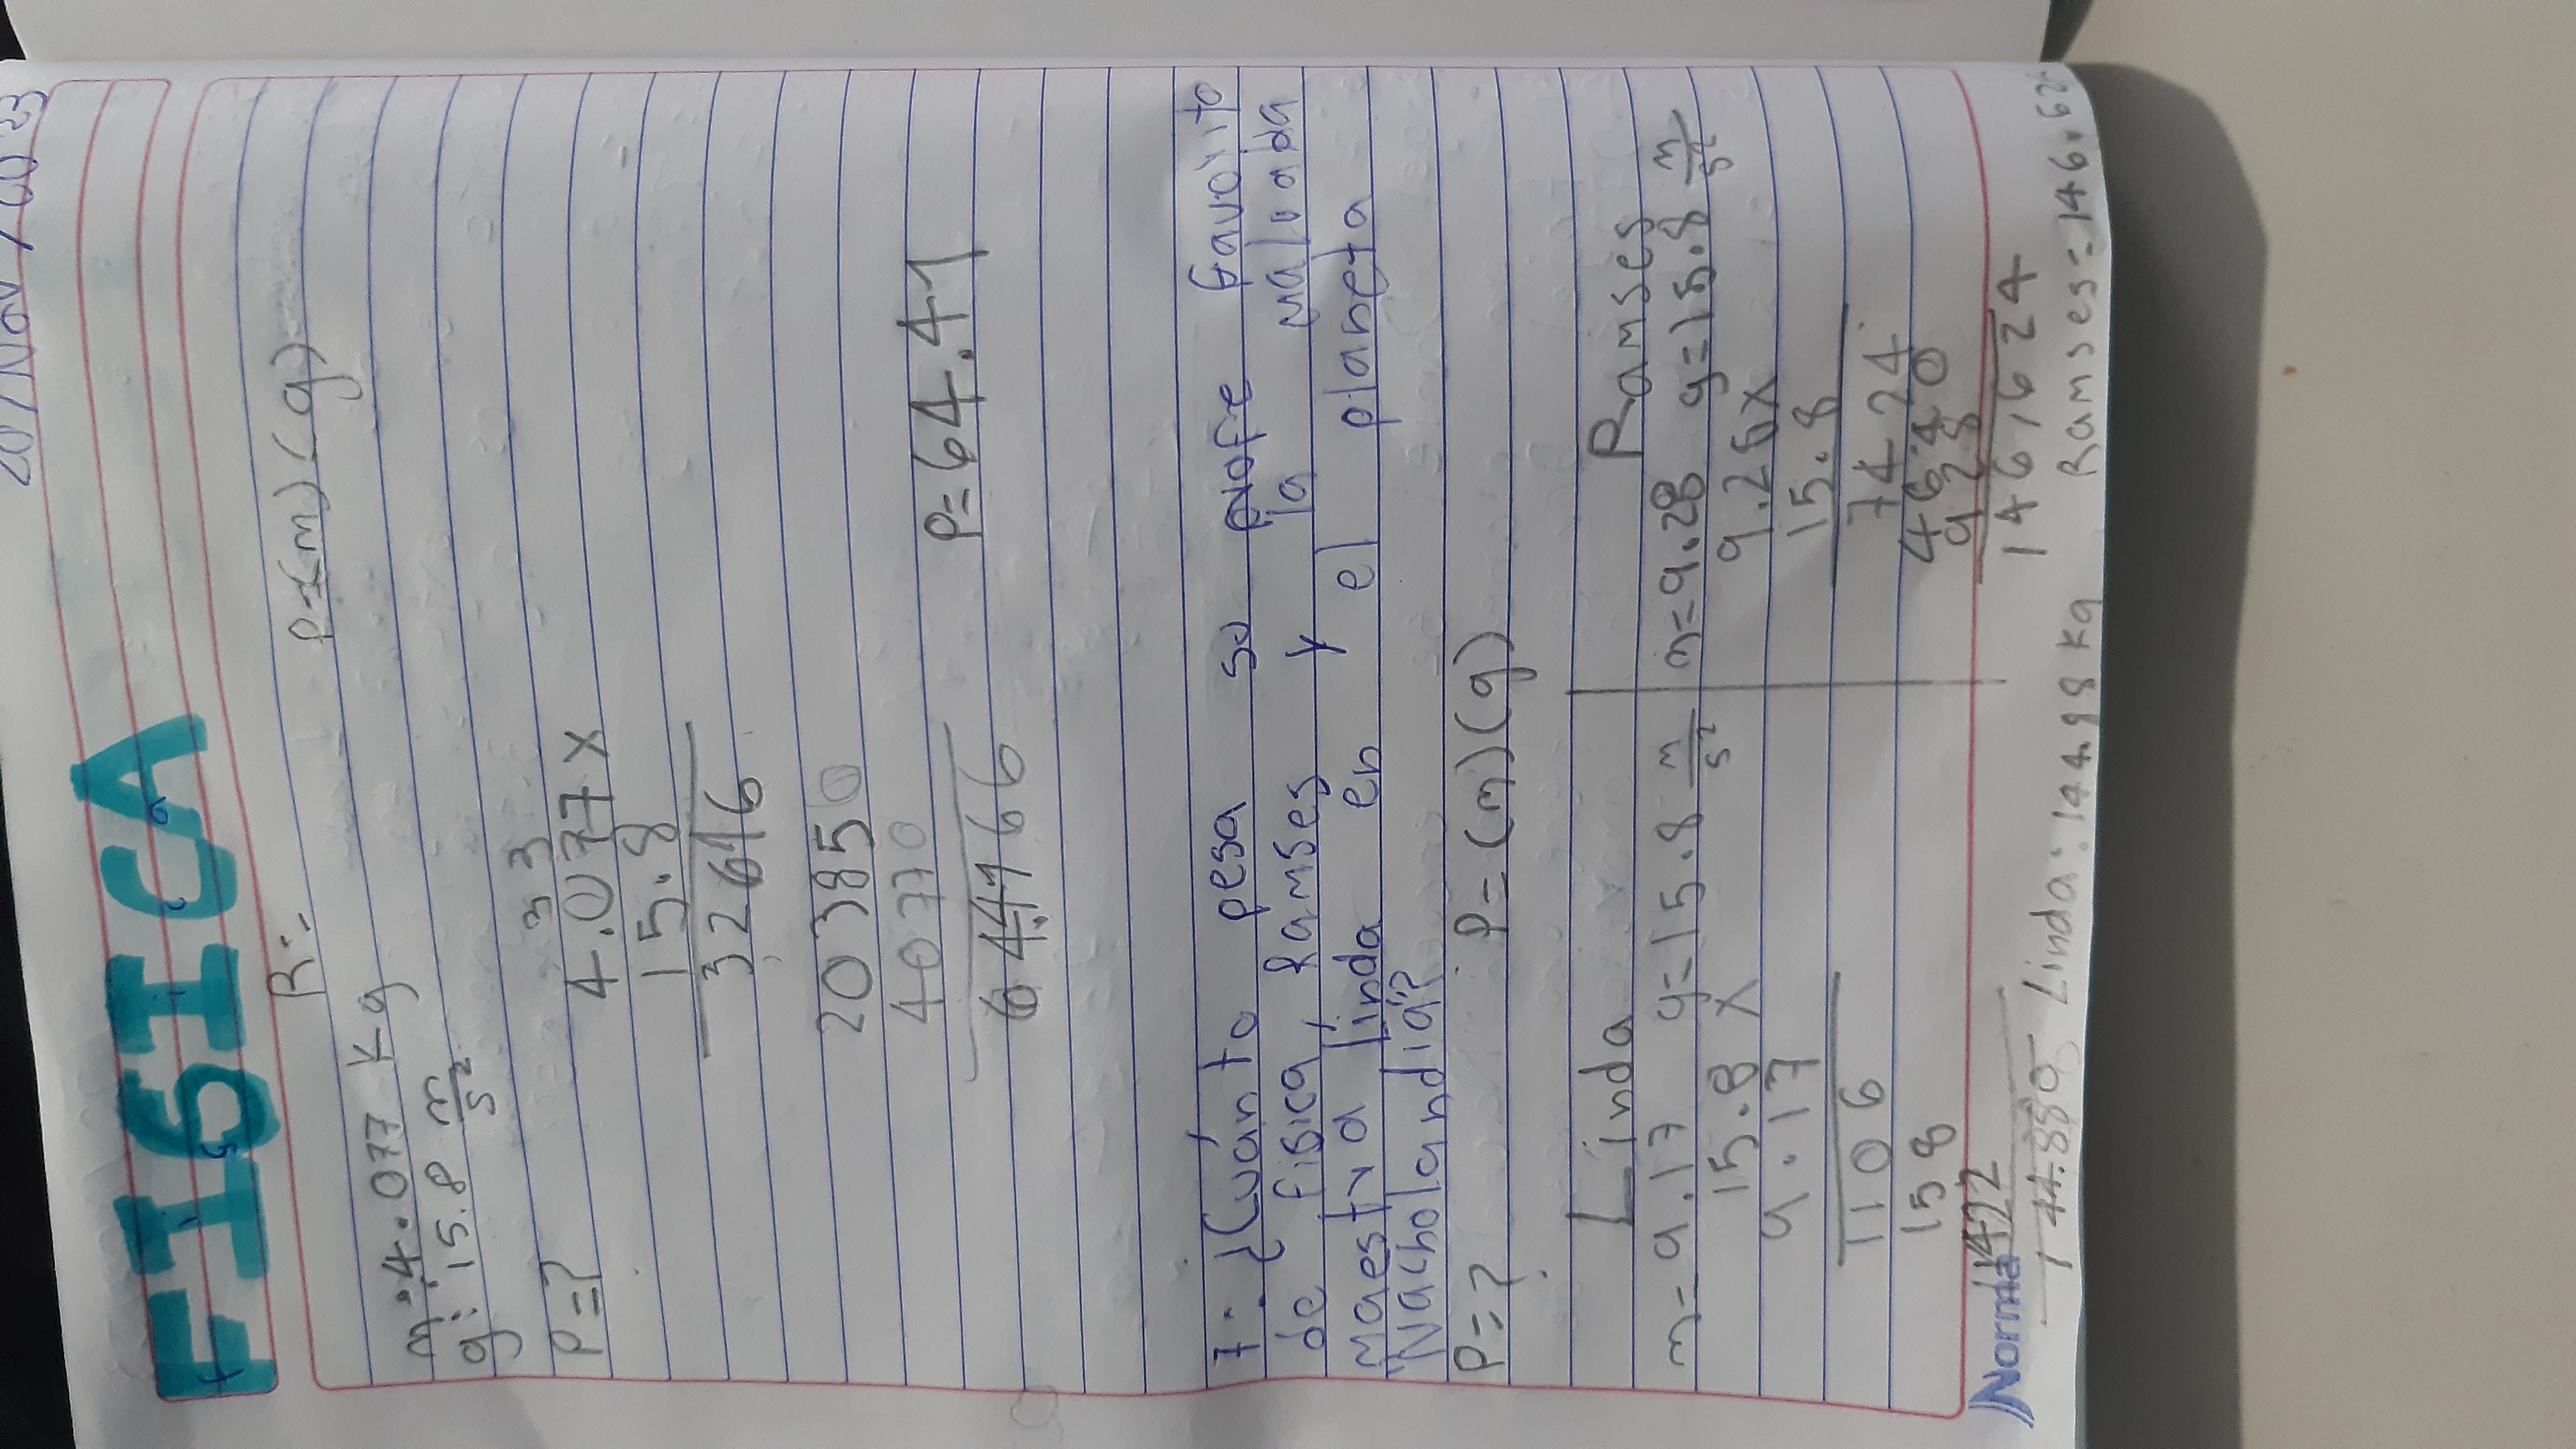 20/Nov/2023
FISICA
R:.
P=(m)(g)
m: 4.077 Kg
g: 15.8 m/s²
P=?
3 3
4.077 x
15.8
32616
203850
40770
64.4166
P=64.41
7.- ¿Cuánto pesa su profe favorito
de física, Ramses y la malvada
maestra linda en el planeta
Nacholandia?
P=?
P=(m)(g)
Linda
m=9.17 g=15.8 m/s²
15.8 x
9.17
1106
158
1422
144.886
Linda: 144.88 kg
Ramses
m=9.28 g=15.8 m/s²
9.28x
15.8
7424
4640
928
146,624
Ramses=146.62
Norma